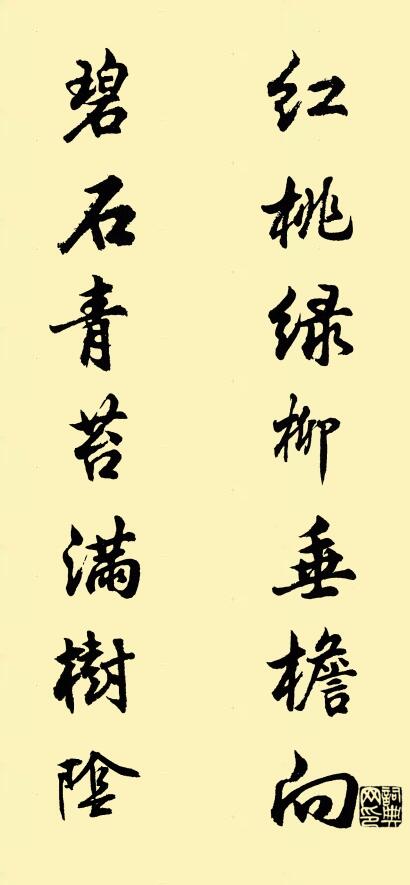 红桃绿柳垂檐向
碧石青苔满樹陰
詞典網